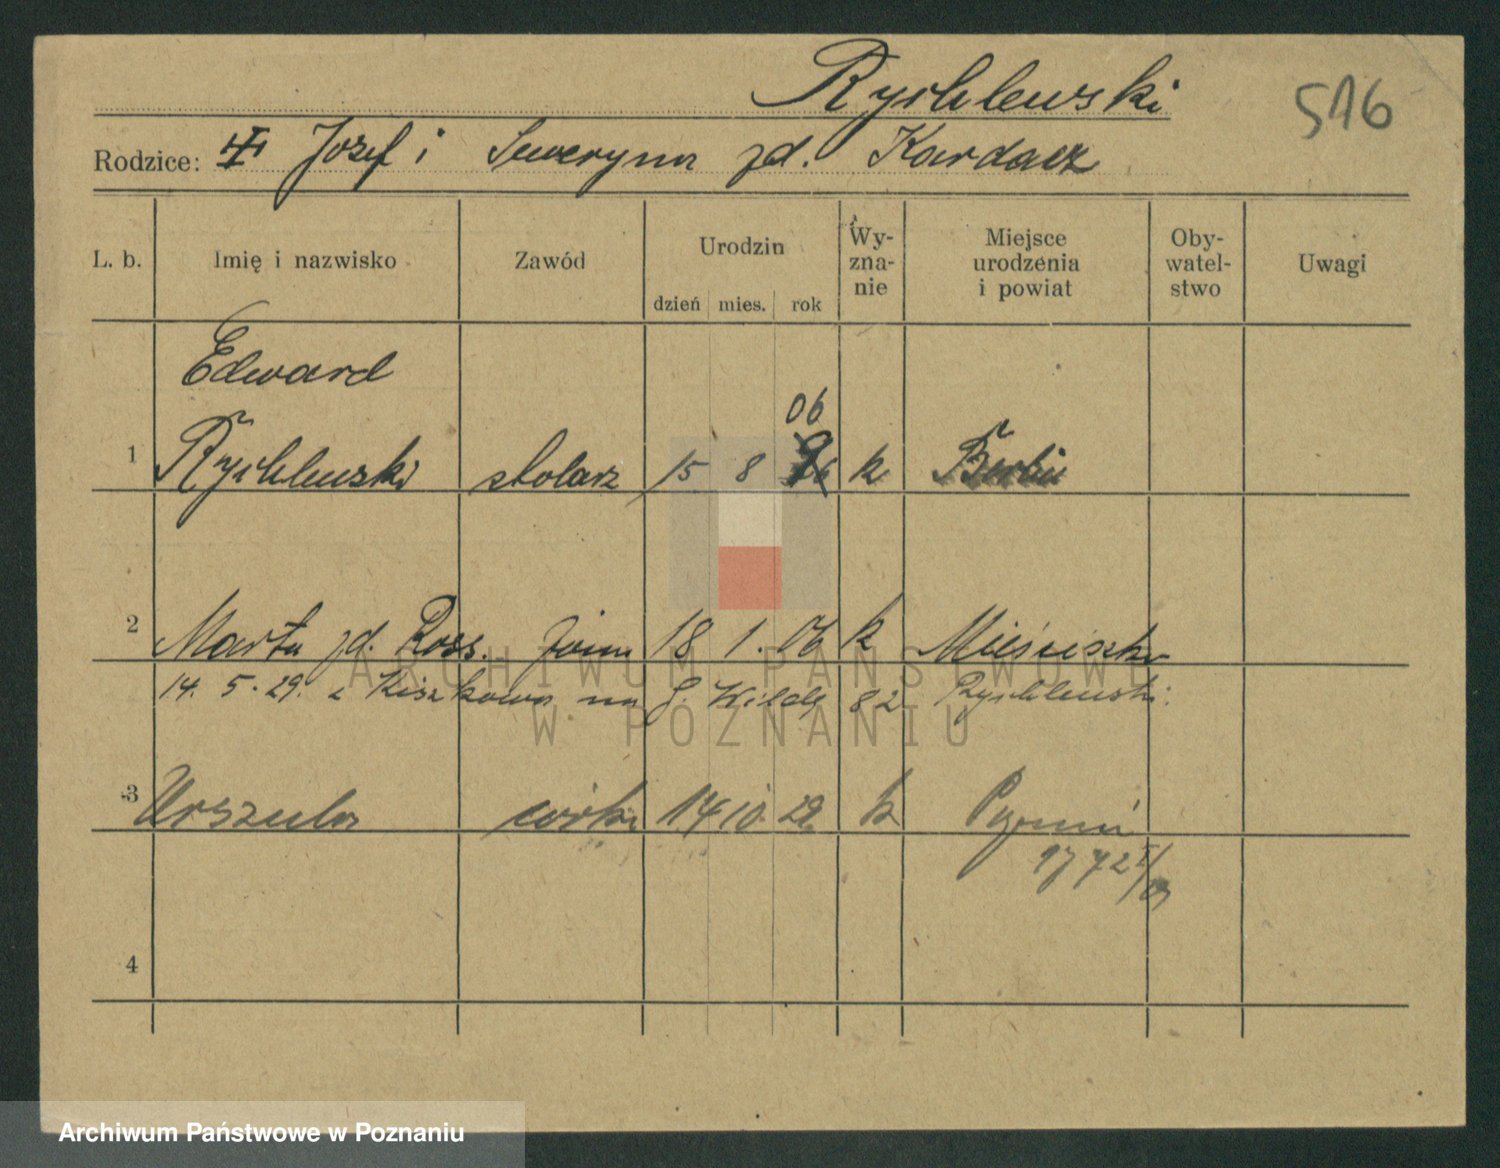 Rychlewski
516
Rodzice: Józef i Seweryna zd. Kardacz
L. b. Imię i nazwisko Zawód Urodzin dzień mies. rok Wy-zna-nie Miejsce urodzenia i powiat Oby-watel-stwo Uwagi
Edward
06
1 Rychlewski stolarz 15 8 k Berlin
2 Marta zd. Ross. żona 18 1. 06 k Mieścisko
14. 5. 29. z Kiszkowa na G. Wildę 82 Rychlewski
3 Urszula córka 14 10. 29. k Poznań
1772
4
ARCHIWUM PAŃSTWOWE
W POZNANIU
Archiwum Państwowe w Poznaniu